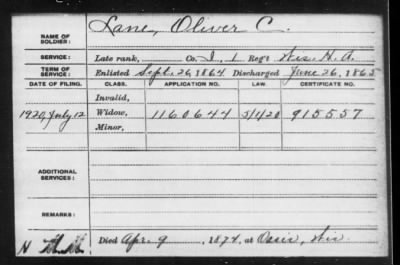 NAME OF SOLDIER: Lane, Oliver C.
SERVICE: Late rank, Co. I, 1 Reg't Wis. H. A.
TERM OF SERVICE: Enlisted Sept. 26, 1864 Discharged June 26, 1865
DATE OF FILING. CLASS. APPLICATION NO. LAW. CERTIFICATE NO.
Invalid,
1920, July 12 Widow, 1160644 5/1/20 915557
Minor,
ADDITIONAL SERVICES:
REMARKS:
N
Died Apr. 9, 1874, at Wis.